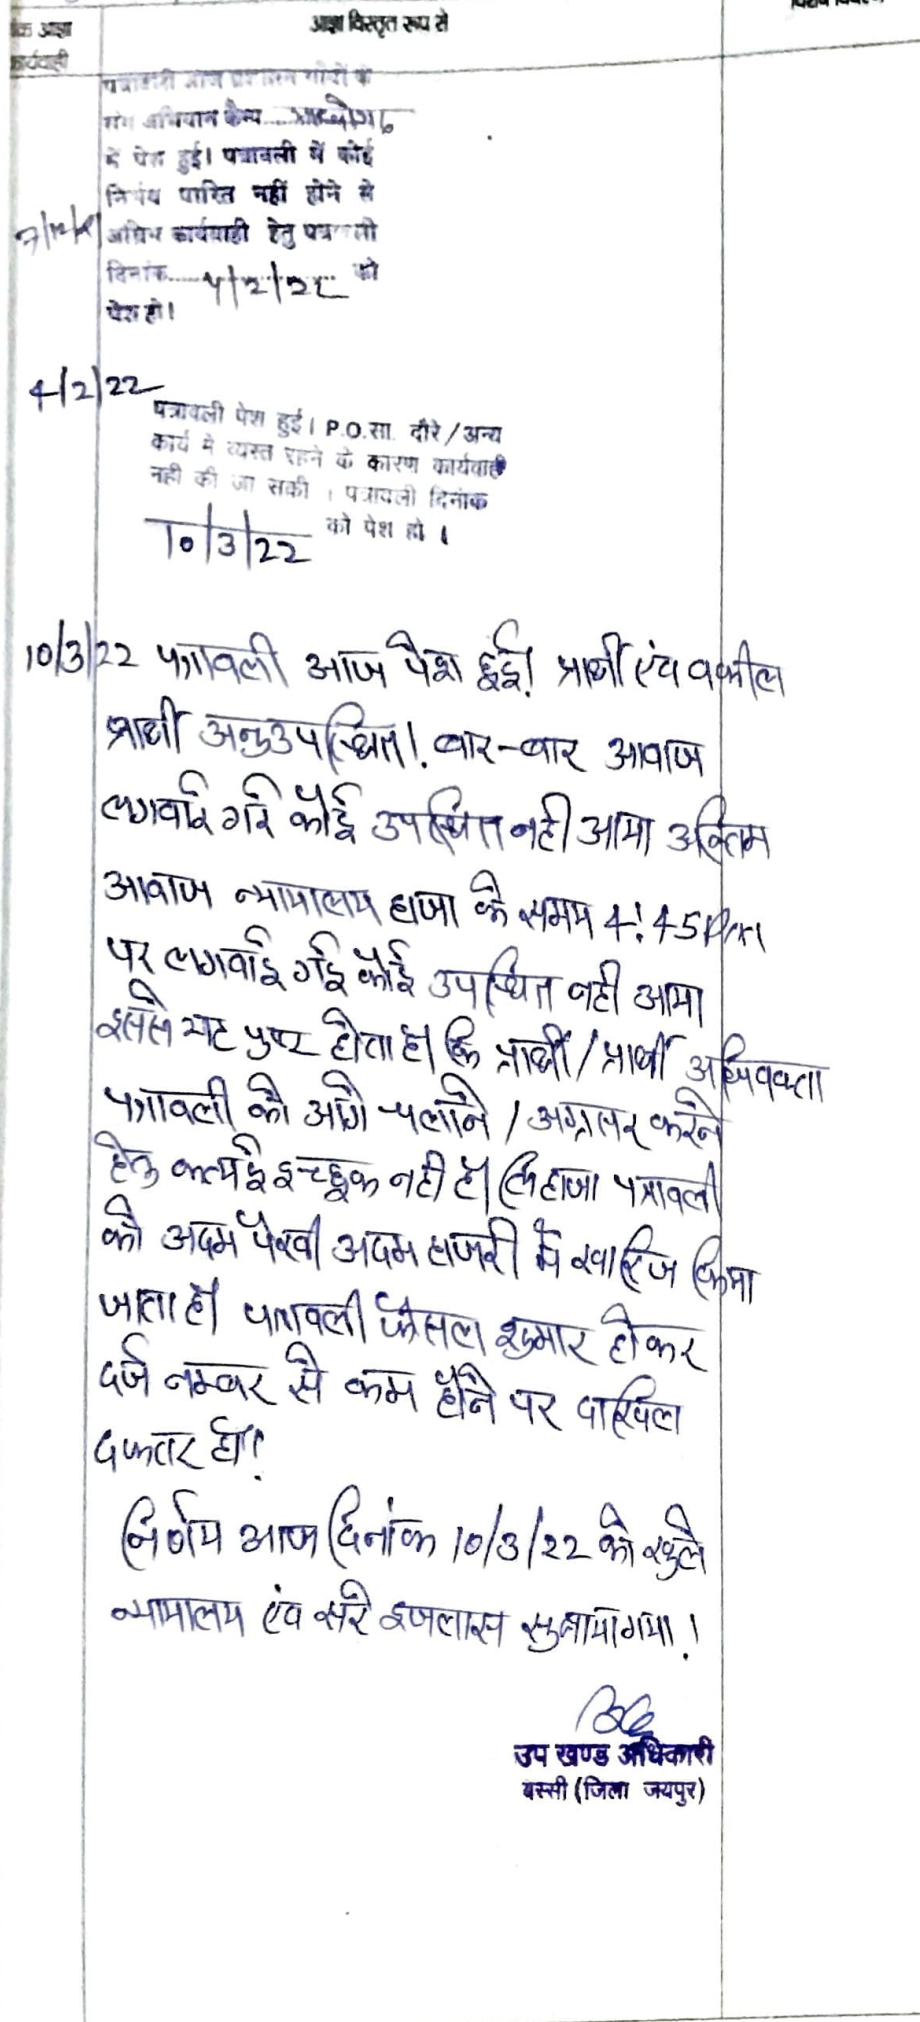 क आज्ञा
कार्यवाही
आज्ञा विस्तृत रूप से
पत्रावली आज प्रशासन गांवों के
संग अभियान कैम्प
में पेश हुई। पत्रावली में कोई
निर्णय पारित नहीं होने से
अग्रिम कार्यवाही हेतु पत्रावली
दिनांक 4/2/22 को
पेश हो।
4/2/22
पत्रावली पेश हुई। P.O.सा. दौरे/अन्य
कार्य मे व्यस्त रहने के कारण कार्यवाही
नही की जा सकी । पत्रावली दिनांक
10/3/22 को पेश हो ।
10/3/22 पत्रावली आज पेश हुई! प्रार्थी एंव वकील
प्रार्थी अनुउपस्थित!. बार-बार आवाज
लगवाई गई कोई उपस्थित नही आया अन्तिम
आवाज न्यायालय हाजा के समय 4:45 PM
पर लगवाई गई कोई उपस्थित नही आया
इससे यह पुष्ट होता है। कि प्रार्थी/प्रार्थी अधिवक्ता
पत्रावली को आगे चलाने/अग्रसर करने
हेतु कत्यई इच्छूक नही है। लिहाजा पत्रावली
को अदम पैरवी अदम हाजरी मे खारिज किया
जाता है। पत्रावली फैसल शुमार होकर
दर्ज नम्बर से कम होने पर दाखिल
दफ्तर हो!
निर्णय आज दिनांक 10/3/22 को खुले
न्यायालय एंव सरे इजलास सुनाया गया!
उप खण्ड अधिकारी
बस्सी (जिला जयपुर)